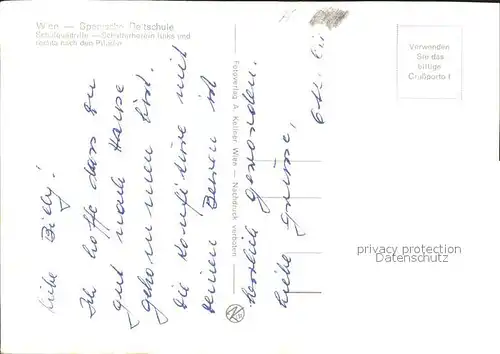 Wien — Spanische Reitschule
Schulquadrille — Schulterherein links und
rechts nach den Pilaren
Verwenden
Sie das
billige
Grußporto !
Fotoverlag A. Kellner Wien — Nachdruck verboten
Liebe Billy!
Ich hoffe dass du
gut nach Hause
gekommen bist.
die Konfitüre mit
deinen Beeren ist
herrlich geworden.
Liebe Grüsse,
privacy protection
Datenschutz